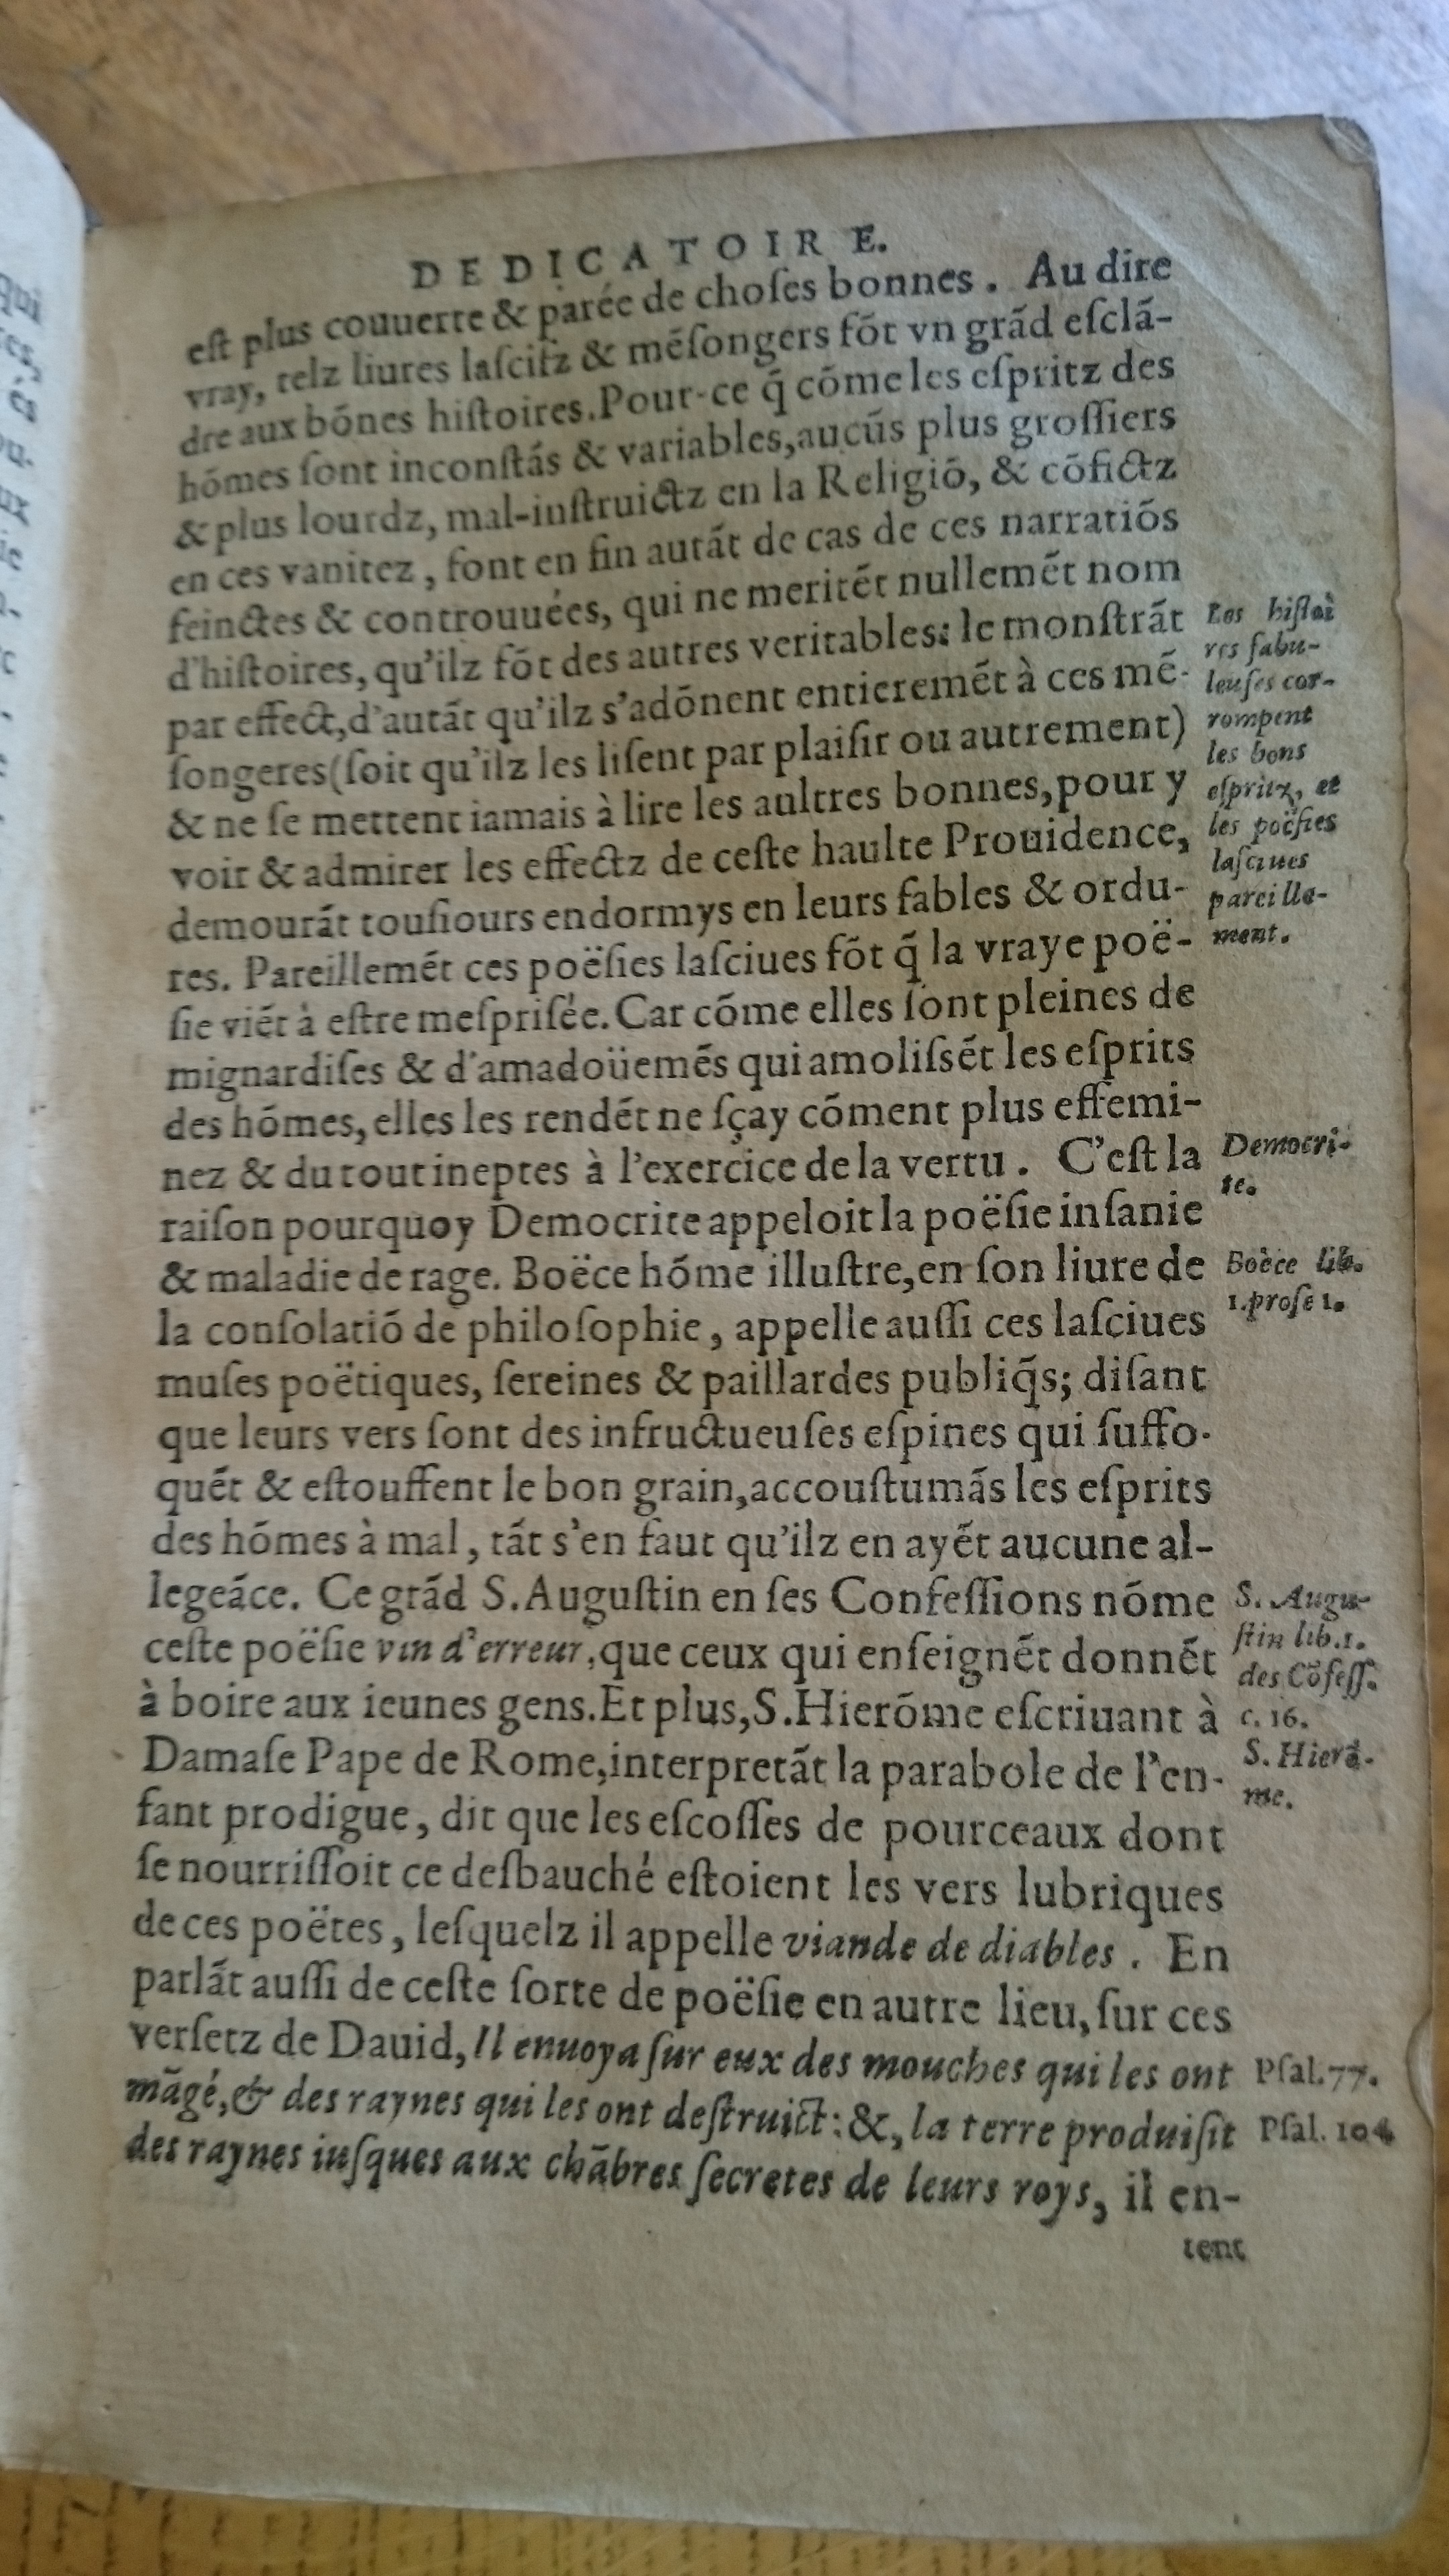 DEDICATOIRE.
est plus couuerte & parée de choſes bonnes. Au dire
vray, telz liures laſcifz & mẽſongers fõt vn grãd eſclã-
dre aux bõnes hiſtoires. Pour-ce q̃ cõme les eſpritz des
hõmes ſont inconſtãs & variables, aucũs plus groſſiers
& plus lourdz, mal-inſtruictz en la Religiõ, & cõfictz
en ces vanitez, font en fin autãt de cas de ces narratiõs
feinctes & controuuées, qui ne meritẽt nullemẽt nom
d'hiſtoires, qu'ilz fõt des autres veritables: le monſtrãt
par effect, d'autãt qu'ilz s'adõnent entieremẽt à ces mẽ-
ſongeres (ſoit qu'ilz les liſent par plaiſir ou autrement)
& ne ſe mettent iamais à lire les aultres bonnes, pour y
voir & admirer les effectz de ceſte haulte Prouidence,
demourãt touſiours endormys en leurs fables & ordu-
res. Pareillemẽt ces poëſies laſciues fõt q̃ la vraye poë-
ſie viẽt à eſtre meſpriſée. Car cõme elles ſont pleines de
mignardiſes & d'amadoüemẽs qui amoliſsẽt les eſprits
des hõmes, elles les rendẽt ne ſçay cõment plus effemi-
nez & du tout ineptes à l'exercice de la vertu. C'eſt la
raiſon pourquoy Democrite appeloit la poëſie inſanie
& maladie de rage. Boëce hõme illuſtre, en ſon liure de
la conſolatiõ de philoſophie, appelle auſſi ces laſciues
muſes poëtiques, ſereines & paillardes publiq̃s; diſant
que leurs vers ſont des infructueuſes eſpines qui ſuffo-
quẽt & eſtouffent le bon grain, accouſtumãs les eſprits
des hõmes à mal, tãt s'en faut qu'ilz en ayẽt aucune al-
legeãce. Ce grãd S. Auguſtin en ſes Confeſſions nõme
ceſte poëſie vin d'erreur, que ceux qui enſeignẽt donnẽt
à boire aux ieunes gens. Et plus, S. Hierõme eſcriuant à
Damaſe Pape de Rome, interpretãt la parabole de l'en-
fant prodigue, dit que les eſcoſſes de pourceaux dont
ſe nourriſſoit ce deſbauché eſtoient les vers lubriques
de ces poëtes, leſquelz il appelle viande de diables. En
parlãt auſſi de ceſte ſorte de poëſie en autre lieu, ſur ces
verſetz de Dauid, Il enuoya ſur eux des mouches qui les ont
mãgé, & des raynes qui les ont deſtruict: &, la terre produiſit
des raynes iuſques aux chãbres ſecretes de leurs roys, il en-
tent
Les hiſtoi
res fabu-
leuſes cor-
rompent
les bons
eſpritz, et
les poëſies
laſciues
pareille-
ment.
Democri-
te.
Boëce lib.
1. proſe 1.
S. Augu-
ſtin lib. 1.
des Cõfeſſ.
c. 16.
S. Hierõ-
me.
Pſal. 77.
Pſal. 104